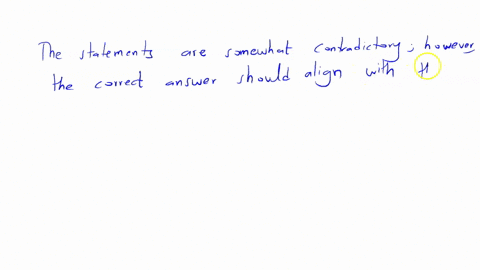 The statements are somewhat contradictory; however
the correct answer should align with